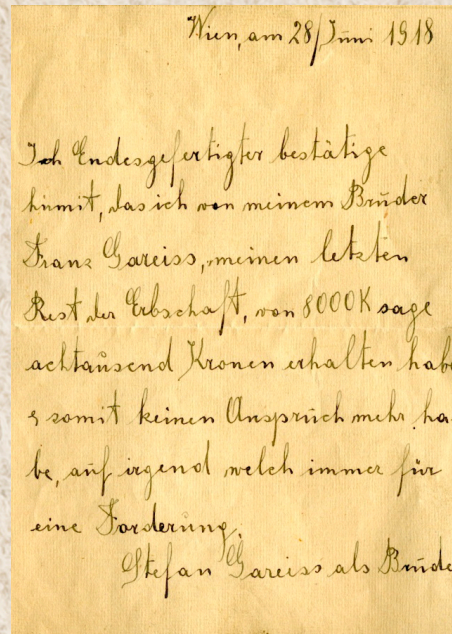 Wien, am 28/Juni 1918
Ich Endesgefertigter bestätige
hiemit, das ich von meinem Bruder
Franz Gareiss, meinen letzten
Rest der Erbschaft, von 8000K sage
achtausend Kronen erhalten habe
& somit keinen Anspruch mehr ha-
be, auf irgend welch immer für
eine Forderung.
Stefan Gareiss als Brude